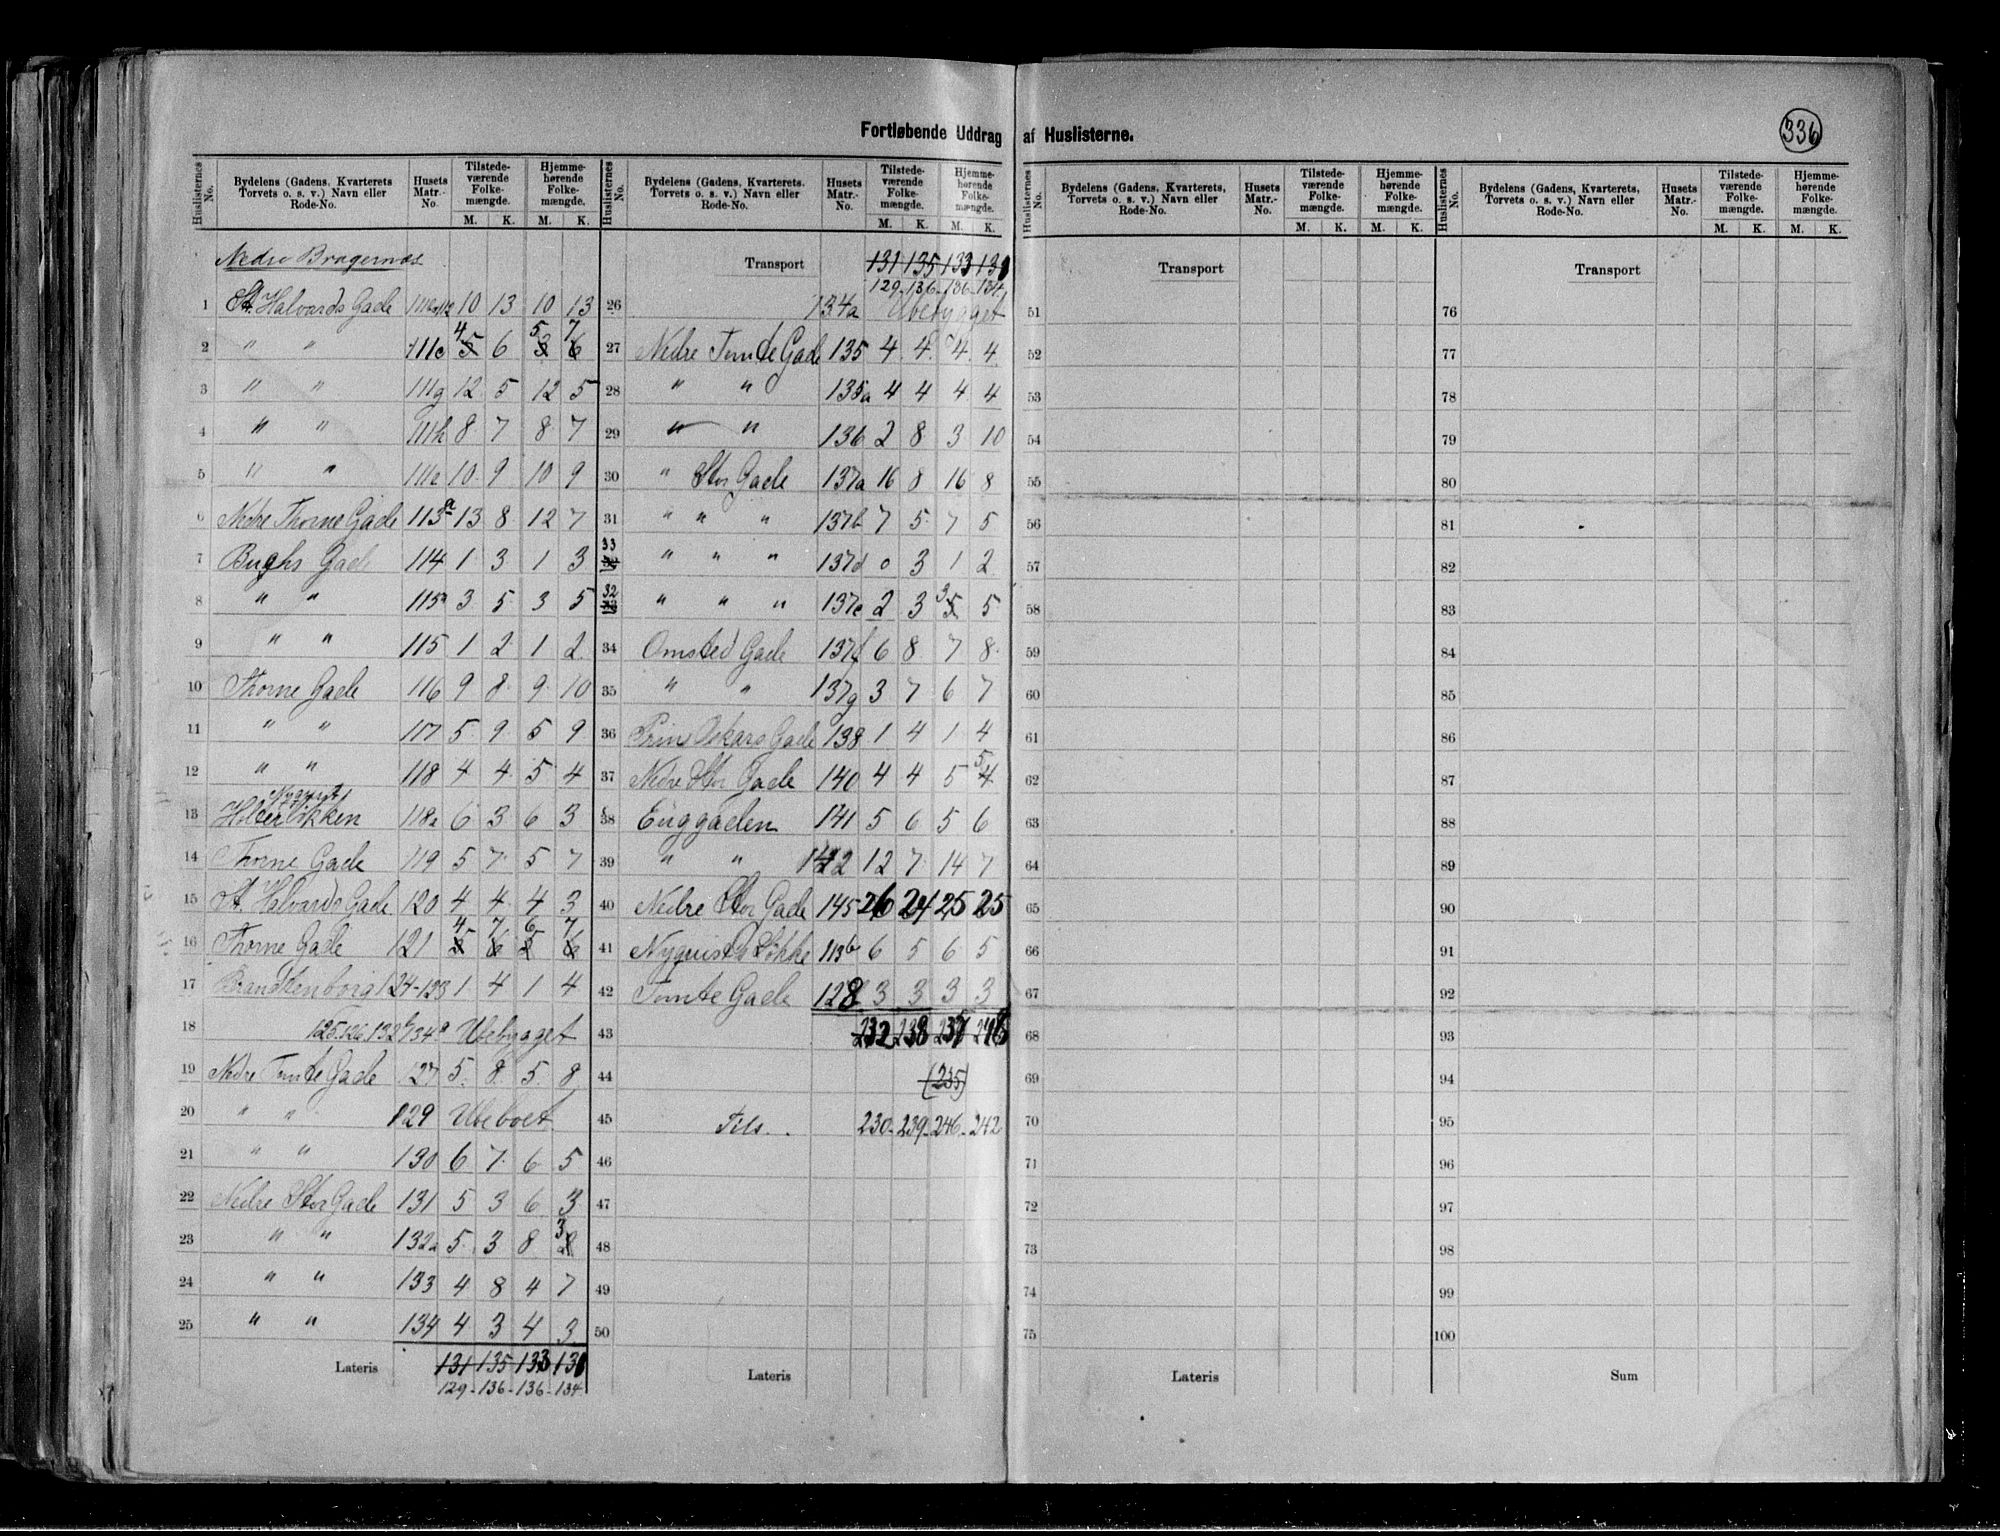 336
Fortløbende Uddrag af Huslisterne.
Huslisternes No. Bydelens (Gadens, Kvarterets Torvets o. s. v.) Navn eller Rode-No. Husets Matr.-No. Tilstedeværende Folkemængde. M. K. Hjemmehørende Folkemængde. M. K.
Nedre Bragernæs
1 St. Halvards Gade 10 13 10 13
2 " " 111c 4 6 5 7
3 " " 111g 12 5 12 5
4 " " 111h 8 7 8 7
5 " " 111e 10 9 10 9
6 Nedre Thorne Gade 113a 13 8 12 7
7 Bughs Gade 114 1 3 1 3
8 " " 115a 3 5 3 5
9 " " 115 1 2 1 2
10 Thorne Gade 116 9 8 9 10
11 " " 117 5 9 5 9
12 " " 118 4 4 5 4
13 118a 6 3 6 3
14 Thorne Gade 119 5 7 5 7
15 St. Halvards Gade 120 4 4 4 3
16 Thorne Gade 121 4 7 6 7
17 Brandtenborg 124-123 1 4 1 4
18 125.126.132b 134a Ubebygget
19 Nedre Tomte Gade 127 5 8 5 8
20 " " 129 Ubeboet
21 " " 130 6 7 6 5
22 Nedre Stor Gade 131 5 3 6 3
23 " " 132a 5 3 8 3
24 " " 133 4 8 4 7
25 " " 134 4 3 4 3
Lateris 131 135 133 130
129 - 136 - 136 - 134
Huslisternes No. Bydelens (Gadens, Kvarterets. Torvets o. s. v.) Navn eller Rode-No. Husets Matr.-No. Tilstedeværende Folkemængde. M. K. Hjemmehørende Folkemængde. M. K.
Transport 131 135 133 130
129 - 136 - 136 - 134
26 134a Ubebygget
27 Nedre Tomte Gade 135 4 4 4 4
28 " " 135a 4 4 4 4
29 " " 136 2 8 3 10
30 " Stor Gade 137a 16 8 16 8
31 " " " 137b 7 5 7 5
33 " " " 137d 0 3 1 2
32 " " " 137e 2 3 3 5
34 Omsted Gade 137f 6 8 7 8
35 " " 137g 3 7 6 7
36 Prins Oskars Gade 138 1 4 1 4
37 Nedre Stor Gade 140 4 4 5 5
38 Enggaden 141 5 6 5 6
39 " " 142 12 7 14 7
40 Nedre Stor Gade 145 26 24 25 25
41 Nyquists Løkke 113b 6 5 6 5
42 Tomte Gade 128 3 3 3 3
43 232 238 237
44 (235)
45 Tils. 230 - 239 - 246 - 242
46
47
48
49
50
Lateris
Huslisternes No. Bydelens (Gadens, Kvarterets, Torvets o. s. v.) Navn eller Rode-No. Husets Matr.-No. Tilstedeværende Folkemængde. M. K. Hjemmehørende Folkemængde. M. K.
Transport
51
52
53
54
55
56
57
58
59
60
61
62
63
64
65
66
67
68
69
70
71
72
73
74
75
Lateris
Huslisternes No. Bydelens (Gadens, Kvarterets, Torvets o. s. v.) Navn eller Rode-No. Husets Matr.-No. Tilstedeværende Folkemængde. M. K. Hjemmehørende Folkemængde. M. K.
Transport
76
77
78
79
80
81
82
83
84
85
86
87
88
89
90
91
92
93
94
95
96
97
98
99
100
Sum